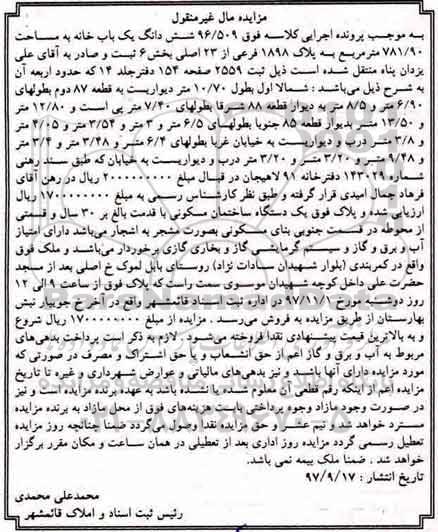 مزایده مال غیرمنقول
به موجب پرونده اجرایی کلاسه فوق ۹۶/۵۰۹ شش دانگ یک باب خانه به مساحت
۷۸۱/۹۰ مترمربع به پلاک ۱۸۹۸ فرعی از ۲۳ اصلی بخش ۶ ثبت و صادر به آقای علی
یزدان پناه منتقل شده است ذیل ثبت ۲۵۵۹ صفحه ۱۵۴ دفترجلد ۱۴ که حدود اربعه آن
به شرح ذیل می‌باشند : شمالا اول بطول ۱۰/۷۰ متر دیواریست به قطعه ۸۷ دوم بطولهای
۶/۹۰ متر و ۸/۵ متر به دیوار قطعه ۸۸ شرقا بطولهای ۷/۴۰ متر پی است و ۱۲/۸۰ متر
و ۱۳/۵۰ متر بدیوار قطعه ۸۵ جنوبا بطولهای ۶/۵ متر و ۳ متر و ۳/۵۴ متر و ۴/۰۵ متر
و ۳/۸ متر درب و دیواریست به خیابان غربا بطولهای ۶/۴ متر و ۳/۴۸ متر و ۳/۴ متر
و ۹/۴۸ متر و ۳/۲۰ متر و ۳/۲۰ متر درب و دیواریست به خیابان که طبق سند رهنی
شماره ۱۴۳۰۲۹ دفترخانه ۹۱ لاهیجان در قبال مبلغ ۲۰۰۰۰۰۰۰۰۰ ریال در رهن آقای
فرهاد جمال امیدی قرار گرفته و طبق نظر کارشناس رسمی به مبلغ ۱۷۰۰۰۰۰۰۰۰ ریال
ارزیابی شده و پلاک فوق یک دستگاه ساختمان مسکونی با قدمت بالغ بر ۳۰ سال و قسمتی
از محوطه در قسمت جنوبی بنای مسکونی بصورت مشجر به اشجار می‌باشد دارای امتیاز
آب و برق و گاز و سیستم گرمایشی گاز و بخاری گازی برخوردار می‌باشد و ملک فوق
واقع در کمربندی (بلوار شهیدان سادات نژاد) روستای بابل لموک خ اصلی بعد از مسجد
حضرت علی داخل کوچه شهیدان موسوی سمت راست که پلاک فوق از ساعت ۹ الی ۱۲
روز دوشنبه مورخ ۹۷/۱۱/۱ در اداره ثبت اسناد قائمشهر واقع در خ جویبار نبش
بهارستان از طریق مزایده به فروش می‌رسد . مزایده از مبلغ ۱۷۰۰۰۰۰۰۰۰ ریال شروع
و به بالاترین قیمت پیشنهادی نقدا فروخته می‌شود . لازم به ذکر است پرداخت بدهی‌های
مربوط به آب و برق و گاز اعم از حق انشعاب و یا حق اشتراک و مصرف در صورتی که
مورد مزایده دارای آنها باشد و نیز بدهی‌های مالیاتی و عوارض شهرداری و غیره تا تاریخ
مزایده اعم از اینکه رقم قطعی آن معلوم شده یا نشده باشد به عهده برنده مزایده است و نیز
در صورت وجود مازاد وجوه پرداختی بابت هزینه‌های فوق از محل مازاد به برنده مزایده
مسترد خواهد شد و نیم عشر و حق مزایده نقدا وصول می‌گردد ضمنا چنانچه روز مزایده
تعطیل رسمی گردد مزایده روز اداری بعد از تعطیلی در همان ساعت و مکان مقرر برگزار
خواهد شد . ضمنا ملک بیمه نمی باشد.
تاریخ انتشار : ۹۷/۹/۱۷
محمدعلی محمدی
رئیس ثبت اسناد و املاک قائمشهر